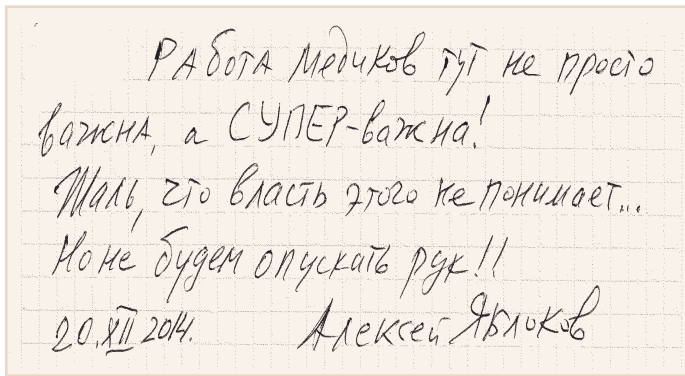 Работа медиков тут не просто
важна, а СУПЕР-важна!
Жаль, что власть этого не понимает...
Но не будем опускать рук!!
20.XII 2014. Алексей Яблоков